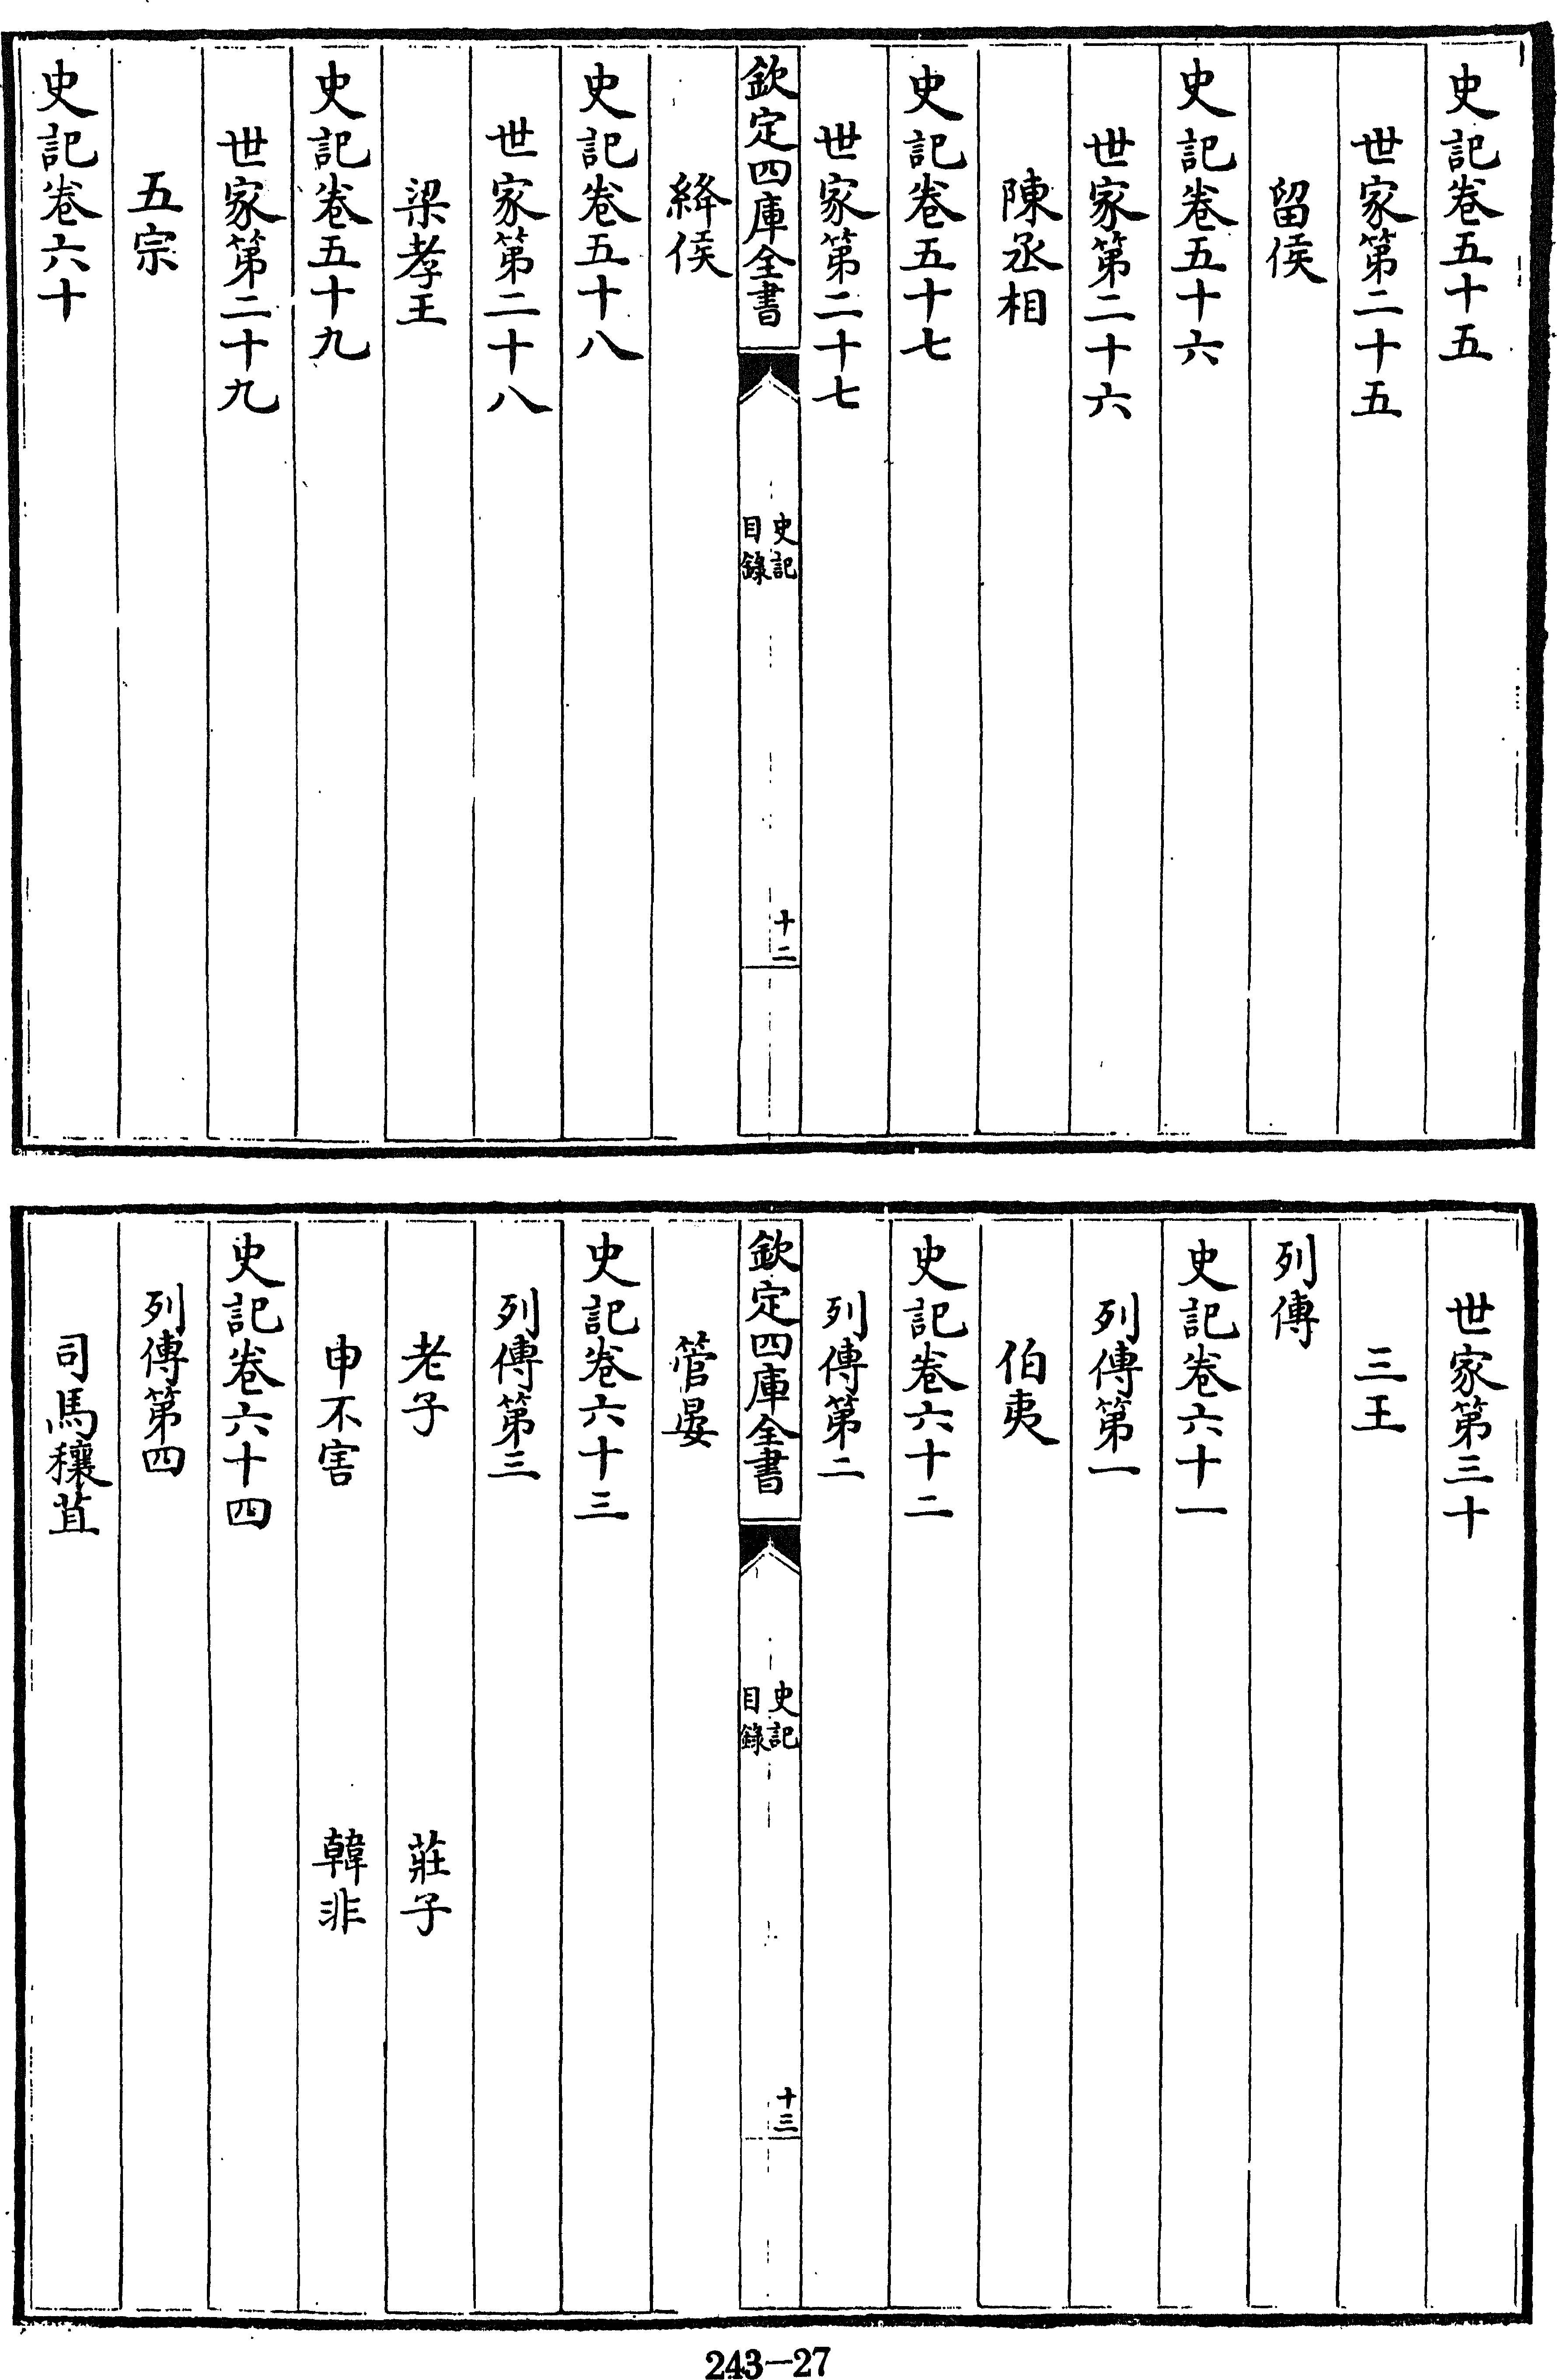 史記卷五十五
世家第二十五
留侯
史記卷五十六
世家第二十六
陳丞相
史記卷五十七
世家第二十七
欽定四庫全書
史記
目錄
十二
絳侯
史記卷五十八
世家第二十八
梁孝王
史記卷五十九
世家第二十九
五宗
史記卷六十
世家第三十
三王
列傳
史記卷六十一
列傳第一
伯夷
史記卷六十二
列傳第二
欽定四庫全書
史記
目錄
十三
管晏
史記卷六十三
列傳第三
老子 莊子
申不害 韓非
史記卷六十四
列傳第四
司馬穰苴
243-27